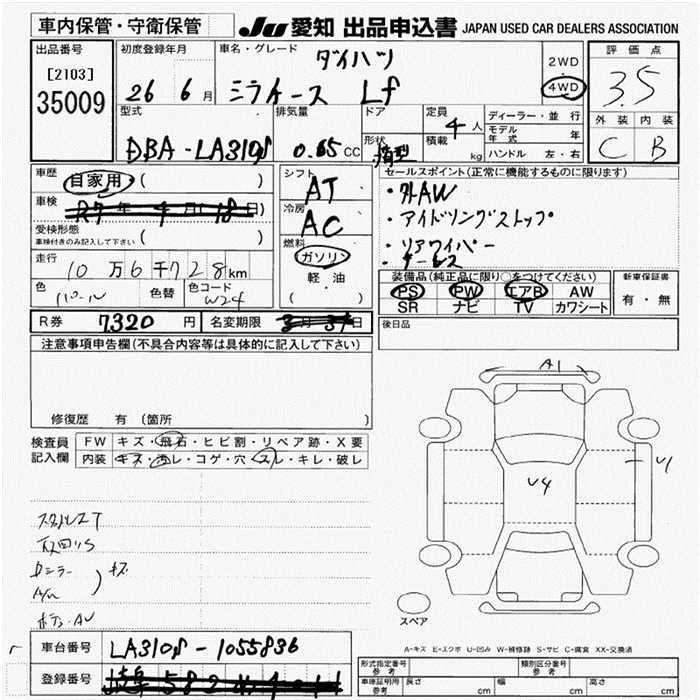 車内保管・守衛保管
JU 愛知 出品申込書 JAPAN USED CAR DEALERS ASSOCIATION
出品番号
[2103]
35009
初度登録年月
26 6 月
車名・グレード
ダイハツ
ミライース Lf
2WD
4WD
評価点
3.5
外装 内装
C B
型式
DBA-LA310S
排気量
0.65 CC
ドア
形状
箱型
定員
4 人
積載
kg
ディーラー・並行
モデル年式 年
ハンドル 左・右
車歴
自家用 ( )
車検
R7 年 4 月 (18 日)
受検形態
車検付きのみ記入して下さい ( )
走行
10 万 6 千 728 km
色
パール
色替
色コード
W24
シフト
AT
冷房
AC
燃料
ガソリン
軽・油
( )
セールスポイント (正常に機能するものに限ります)
・外AW
・アイドリングストップ
・リアワイパー
・キーレス
装備品 (純正品に限り○をつけてください)
PS PW エアB AW
SR ナビ TV カワシート
新車保証書
有・無
後日品
R券 7320 円
名変期限 3月31日
注意事項申告欄 (不具合内容等は具体的に記入して下さい)
修復歴 有 (箇所 )
検査員記入欄
FW キズ・飛石・ヒビ割・リペア跡・X要
内装 キズ・汚レ・コゲ・穴・スレ・キレ・破レ
Dミラー
キズ
A1
U4
U1
スペア
A-キズ E-エクボ U-凹み W-補修跡 S-サビ C-腐食 XX-交換済
車台番号 LA310S-1055836
登録番号
形式指定番号 参考
類別区分番号 参考
車庫証明用 参考
長さ cm 幅 cm 高さ cm